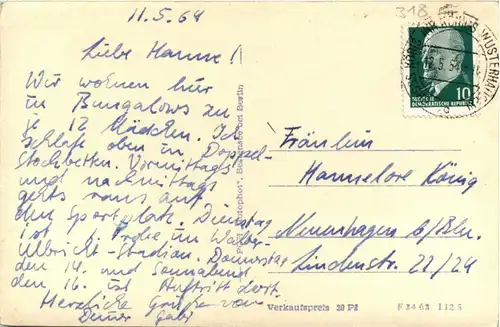 11.5.64
318
Liebe Hanne!
Wir wohnen hier
in Bungalows zu
je 12 Mädchen. Ich
schlafe oben in Doppel-
stockbetten. Vormittags
und nachmittags
gehts raus auf
den Sportplatz. Dienstag
ist Probe im Walter-
Ulbricht-Stadion. Donnerstag
den 14. und Sonnabend
den 16. ist Auftritt dort.
Herzliche Grüße von
Deiner Gabi
KÖNIGS WUSTERHAUSEN
12.5.64
10
DEUTSCHE
DEMOKRATISCHE REPUBLIK
Fräulein
Hannelore König
Neuenhagen b/Bln.
Lindenstr. 22/24
Berlin
Verkaufspreis 20 Pf